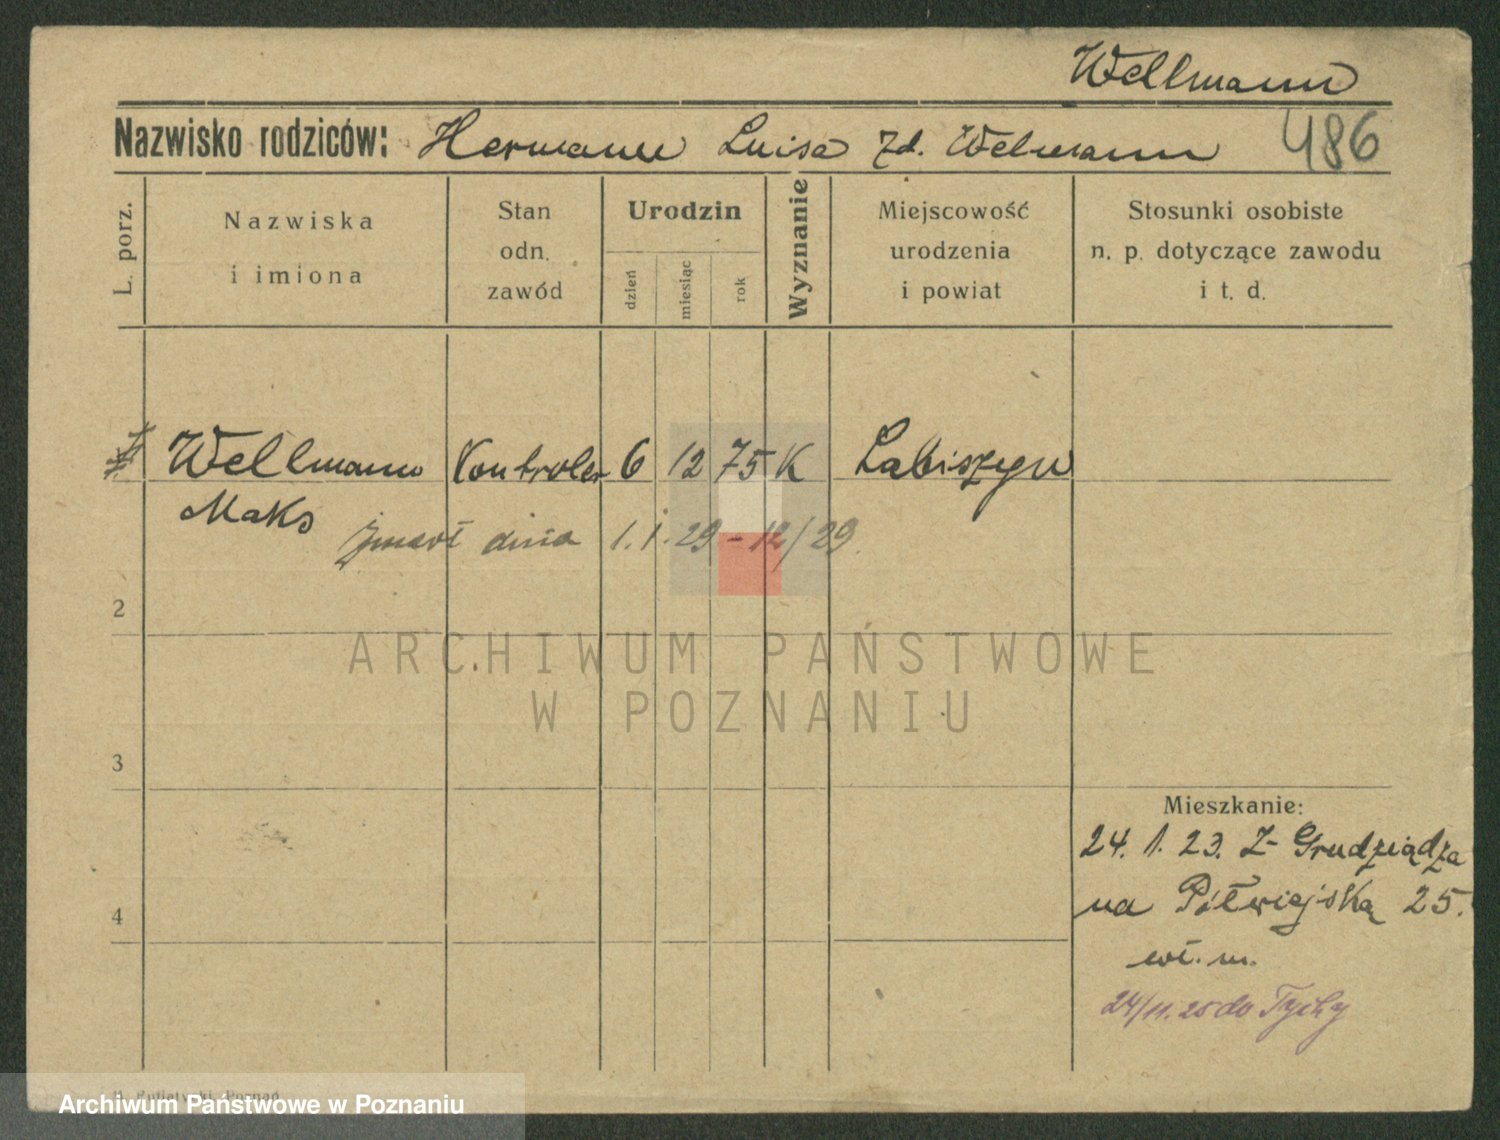 Wellmann
Nazwisko rodziców: Hermann Luisa zd. Welmann 486
L. porz.
Nazwiska
i imiona
Stan
odn.
zawód
Urodzin
dzień
miesiąc
rok
Wyznanie
Miejscowość
urodzenia
i powiat
Stosunki osobiste
n. p. dotyczące zawodu
i t. d.
Wellmann Kontroler 6 12 75 K Labiszyn
Maks
zmarł dnia 1. 1. 29 - 12/29.
2
ARCHIWUM PAŃSTWOWE
W POZNANIU
3
Mieszkanie:
24. 1. 23. Z Grudziądza
na Półwiejską 25.
4
wł. m.
24/11. 25 do Tychy
Archiwum Państwowe w Poznaniu